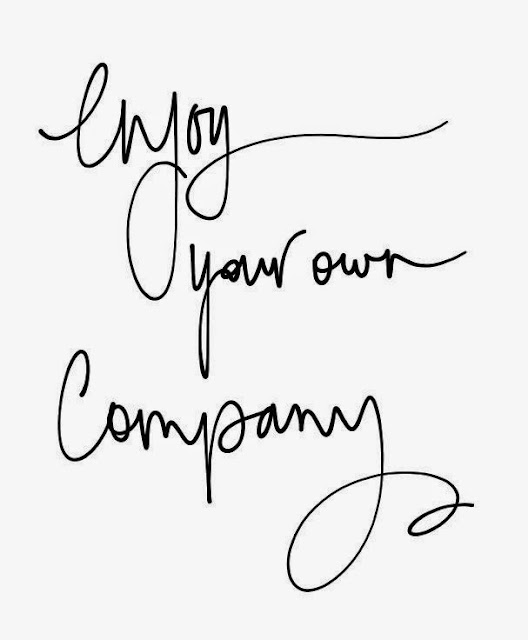 enjoy
your own
Company